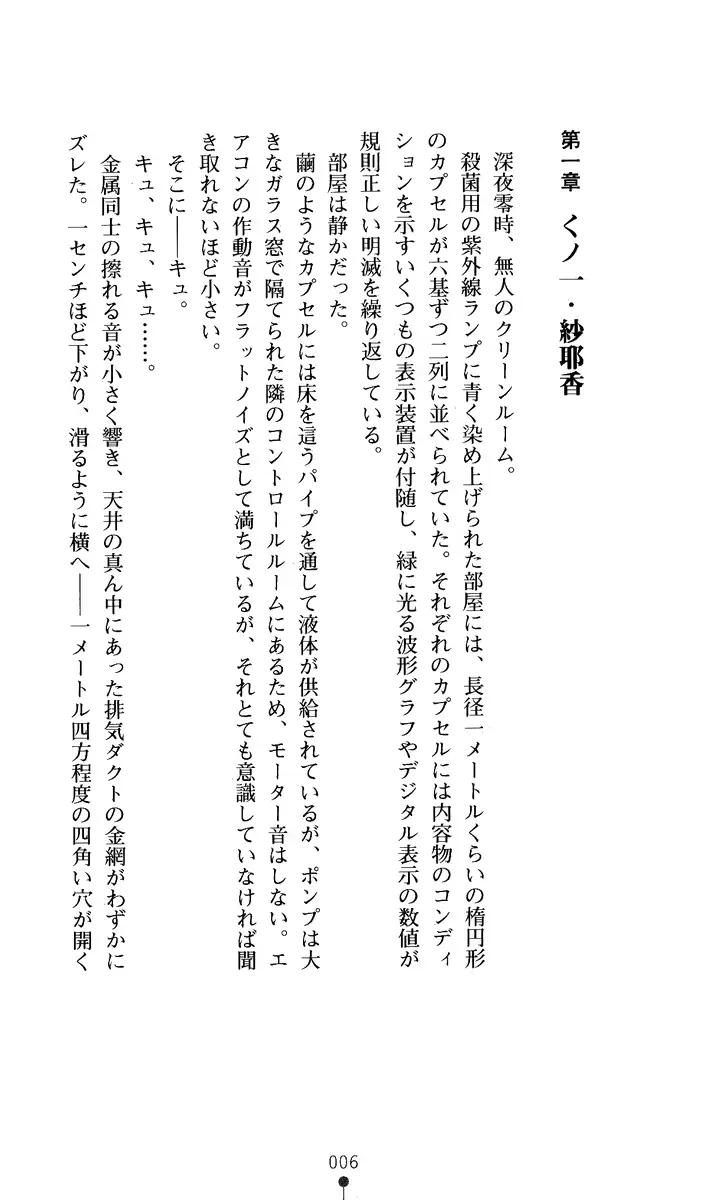 第一章　くノ一・紗耶香
深夜零時、無人のクリーンルーム。
殺菌用の紫外線ランプに青く染め上げられた部屋には、長径一メートルくらいの楕円形
のカプセルが六基ずつ二列に並べられていた。それぞれのカプセルには内容物のコンディ
ションを示すいくつもの表示装置が付随し、緑に光る波形グラフやデジタル表示の数値が
規則正しい明滅を繰り返している。
部屋は静かだった。
繭のようなカプセルには床を這うパイプを通して液体が供給されているが、ポンプは大
きなガラス窓で隔てられた隣のコントロールルームにあるため、モーター音はしない。エ
アコンの作動音がフラットノイズとして満ちているが、それとても意識していなければ聞
き取れないほど小さい。
そこに――キュ。
キュ、キュ、キュ……。
金属同士の擦れる音が小さく響き、天井の真ん中にあった排気ダクトの金網がわずかに
ズレた。一センチほど下がり、滑るように横へ――一メートル四方程度の四角い穴が開く
006